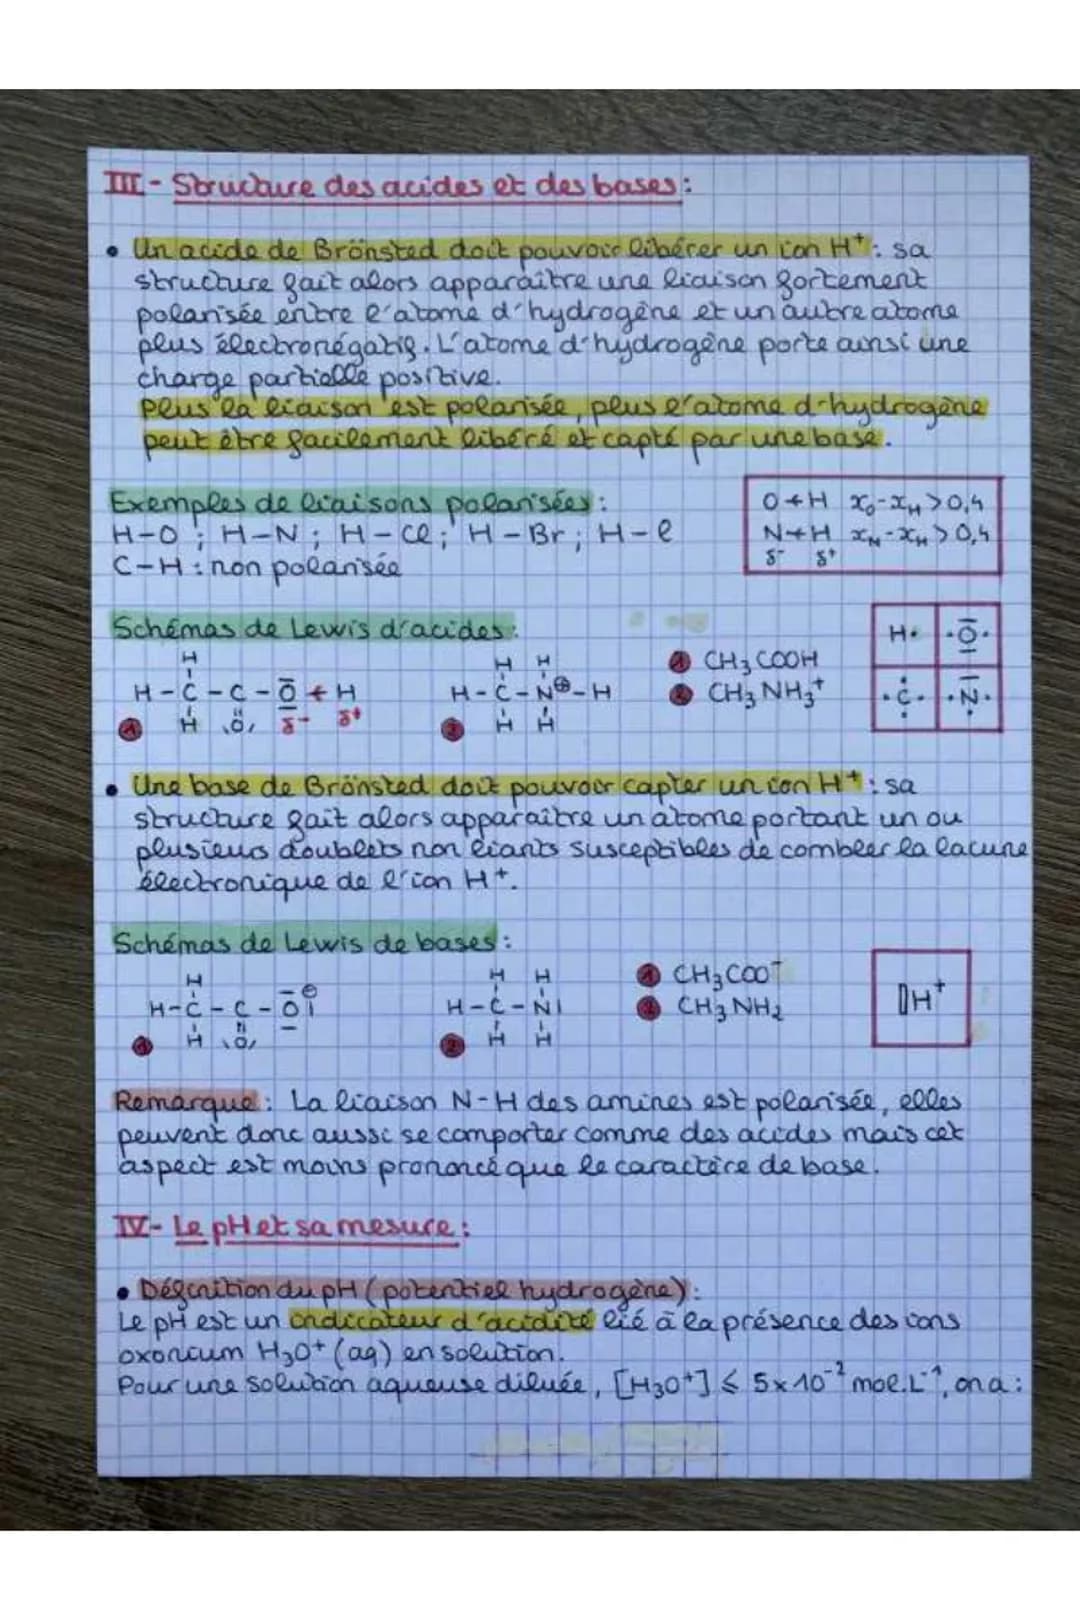 III - Structure des acides et des bases :
• Un acide de Brönsted doit pouvoir libérer un ion H⁺ : sa
structure fait alors apparaître une liaison fortement
polarisée entre l'atome d'hydrogène et un autre atome
plus électronégatif. L'atome d'hydrogène porte ainsi une
charge partielle positive.
Plus la liaison est polarisée, plus l'atome d'hydrogène
peut être facilement libéré et capté par une base.
Exemples de liaisons polarisées :
H-O ; H-N ; H-Cl ; H-Br ; H-l
C-H : non polarisée
O + H xO-xH > 0,4
N + H xN-xH > 0,4
δ⁻ δ⁺
Schémas de Lewis d'acides :
H
H - C - C - O + H
H O δ⁻ δ⁺
1
H H
H - C - N⊕ - H
H H
2
1 CH₃COOH
2 CH₃NH₃⁺
H· ·O·
·C· ·N·
• Une base de Brönsted doit pouvoir capter un ion H⁺ : sa
structure fait alors apparaître un atome portant un ou
plusieurs doublets non liants susceptibles de combler la lacune
électronique de l'ion H⁺.
Schémas de Lewis de bases :
H
H - C - C - O⊖
H O
1
H H
H - C - N|
H H
2
1 CH₃COO⁻
2 CH₃NH₂
▯H⁺
Remarque : La liaison N-H des amines est polarisée, elles
peuvent donc aussi se comporter comme des acides mais cet
aspect est moins prononcé que le caractère de base.
IV - Le pH et sa mesure :
• Définition du pH (potentiel hydrogène) :
Le pH est un indicateur d'acidité lié à la présence des ions
oxonium H₃O⁺ (aq) en solution.
Pour une solution aqueuse diluée, [H₃O⁺] ⩽ 5×10⁻² mol.L⁻¹, on a :